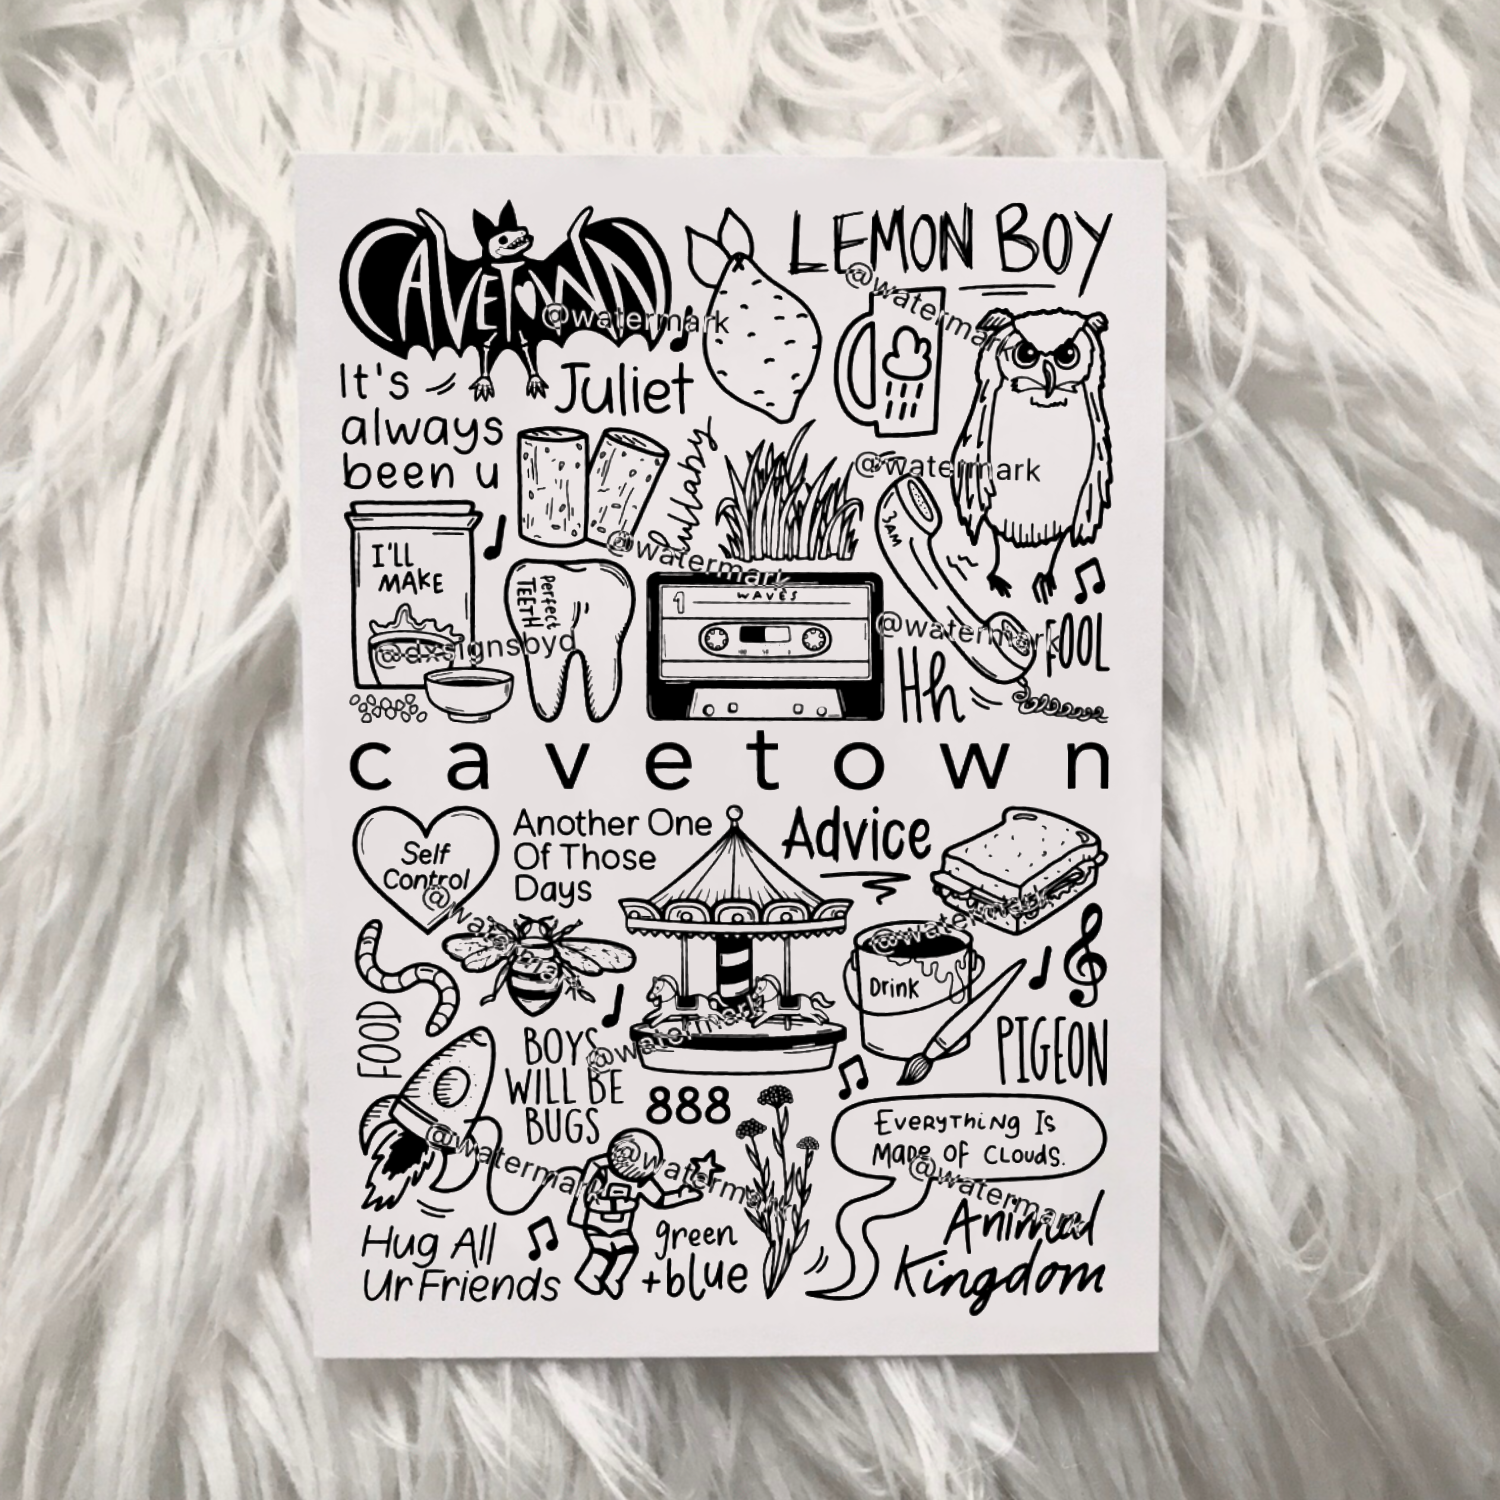 CAVETOWN
LEMON BOY
@watermark
@watermark
It's
always
been u
Juliet
lullaby
@watermark
3AM
I'LL
MAKE
Perfect
TEETH
@watermark
1 WAVES
@watermark
@dxsignsbyd
FOOL
Hh
cavetown
Self
Control
Another One
Of Those
Days
Advice
@watermark
@wa
Drink
FOOD
BOYS
WILL BE
BUGS
@watermark
PIGEON
888
EVERYTHING IS
MADE OF CLOUDS.
@watermark
@watermark
@watermark
Hug All
Ur Friends
green
+blue
Animal
Kingdom